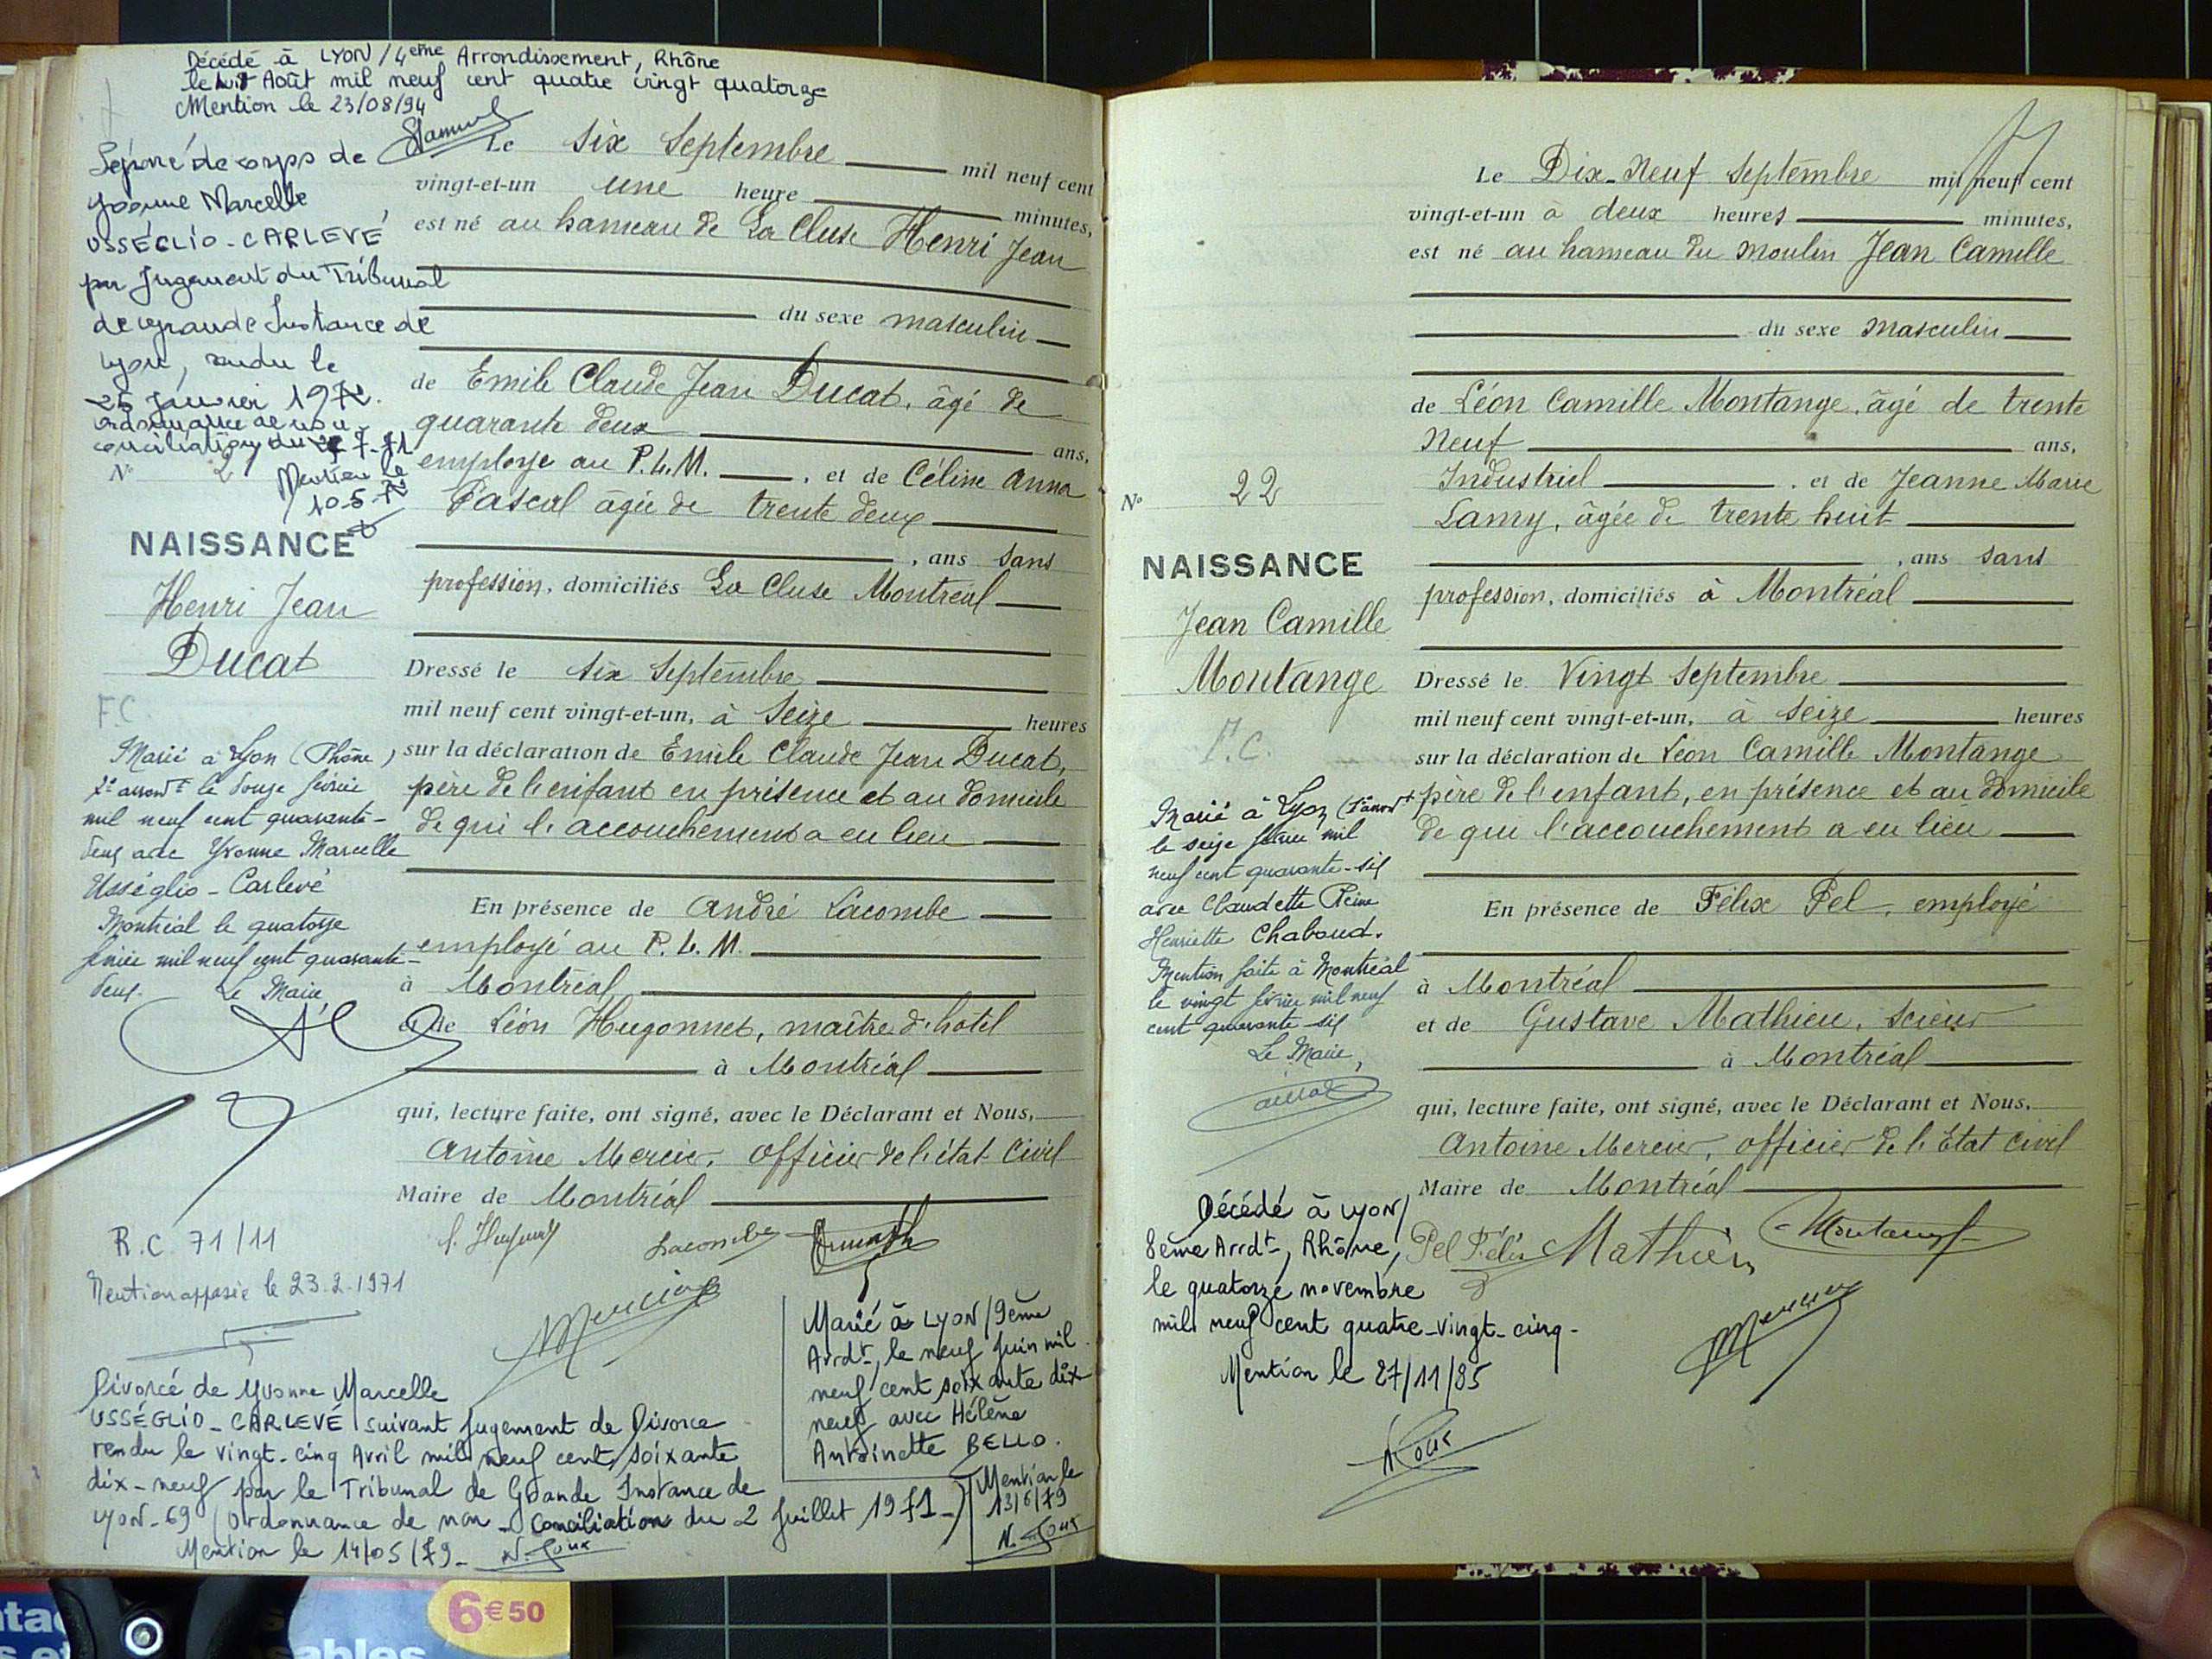 Décédé à LYON/4eme Arrondissement, Rhône
le huit Août mil neuf cent quatre vingt quatorze
Mention le 23/08/94
Séparé de corps de
Yvonne Marcelle
USSÉGLIO-CARLEVÉ
par Jugement du Tribunal
de grande Instance de
Lyon, rendu le
25 Janvier 1972.
ordonnance de non
conciliation du 2-7-71
Mention le
10-5-72
N°
NAISSANCE
Henri Jean
Ducat
F.C.
Marié à Lyon (Rhône)
arrondt le douze février
mil neuf cent quarante-
deux avec Yvonne Marcelle
Usséglio-Carlevé
Montréal le quatorze
février mil neuf cent quarante-
deux. Le Maire,
R.C. 71/11
Mention apposée le 23.2.1971
Le six Septembre mil neuf cent
vingt-et-un une heure minutes,
est né au hameau de La Cluse Henri Jean
du sexe masculin
de Emile Claude Jean Ducat, âgé de
quarante deux ans,
employé au P.L.M. , et de Céline Anna
Pascal âgée de trente deux
, ans sans
profession, domiciliés La Cluse Montréal
Dressé le six Septembre
mil neuf cent vingt-et-un, à Seize heures
sur la déclaration de Emile Claude Jean Ducat,
père de l'enfant en présence et au domicile
de qui l'accouchement a eu lieu
En présence de André Lacombe
employé au P.L.M.
à Montréal
et de Léon Hugonnet, maître d'hôtel
à Montréal
qui, lecture faite, ont signé, avec le Déclarant et Nous,
Antoine Mercier, Officier de l'état Civil
Maire de Montréal
Lacombe
Mercier
Divorcé de Yvonne Marcelle
USSÉGLIO-CARLEVÉ suivant jugement de Divorce
rendu le vingt-cinq Avril mil neuf cent soixante
dix-neuf par le Tribunal de Grande Instance de
LYON-69 (Ordonnance de non-conciliation du 2 Juillet 1971-)
Mention le 14/05/79-
Marié à LYON/9ème
Arrdt, le neuf Juin mil
neuf cent soixante dix
neuf avec Hélène
Antoinette BELLO.
Mention le
13/6/79
Le Dix-Neuf Septembre mil neuf cent
vingt-et-un à deux heures minutes,
est né au hameau du Moulin Jean Camille
du sexe masculin
de Léon Camille Montange, âgé de trente
Neuf ans,
Industriel , et de Jeanne Marie
Lamy, âgée de trente huit
, ans sans
profession, domiciliés à Montréal
Dressé le Vingt Septembre
mil neuf cent vingt-et-un, à seize heures
sur la déclaration de Léon Camille Montange
père de l'enfant, en présence et au domicile
de qui l'accouchement a eu lieu
En présence de Félix Pel, employé
à Montréal
et de Gustave Mathieu, scieur
à Montréal
qui, lecture faite, ont signé, avec le Déclarant et Nous,
Antoine Mercier, officier de l'Etat Civil
Maire de Montréal
Pel Félix Mathieu Montange
Mercier
N° 22
NAISSANCE
Jean Camille
Montange
F.C.
Marié à Lyon
le seize février mil
neuf cent quarante-six
avec Claudette Reine
Henriette Chabaud.
Mention faite à Montréal
le vingt février mil neuf
cent quarante-six
Le Maire,
Décédé à LYON/
8ème Arrdt, Rhône,
le quatorze novembre
mil neuf cent quatre-vingt-cinq-
Mention le 27/11/85
6€50